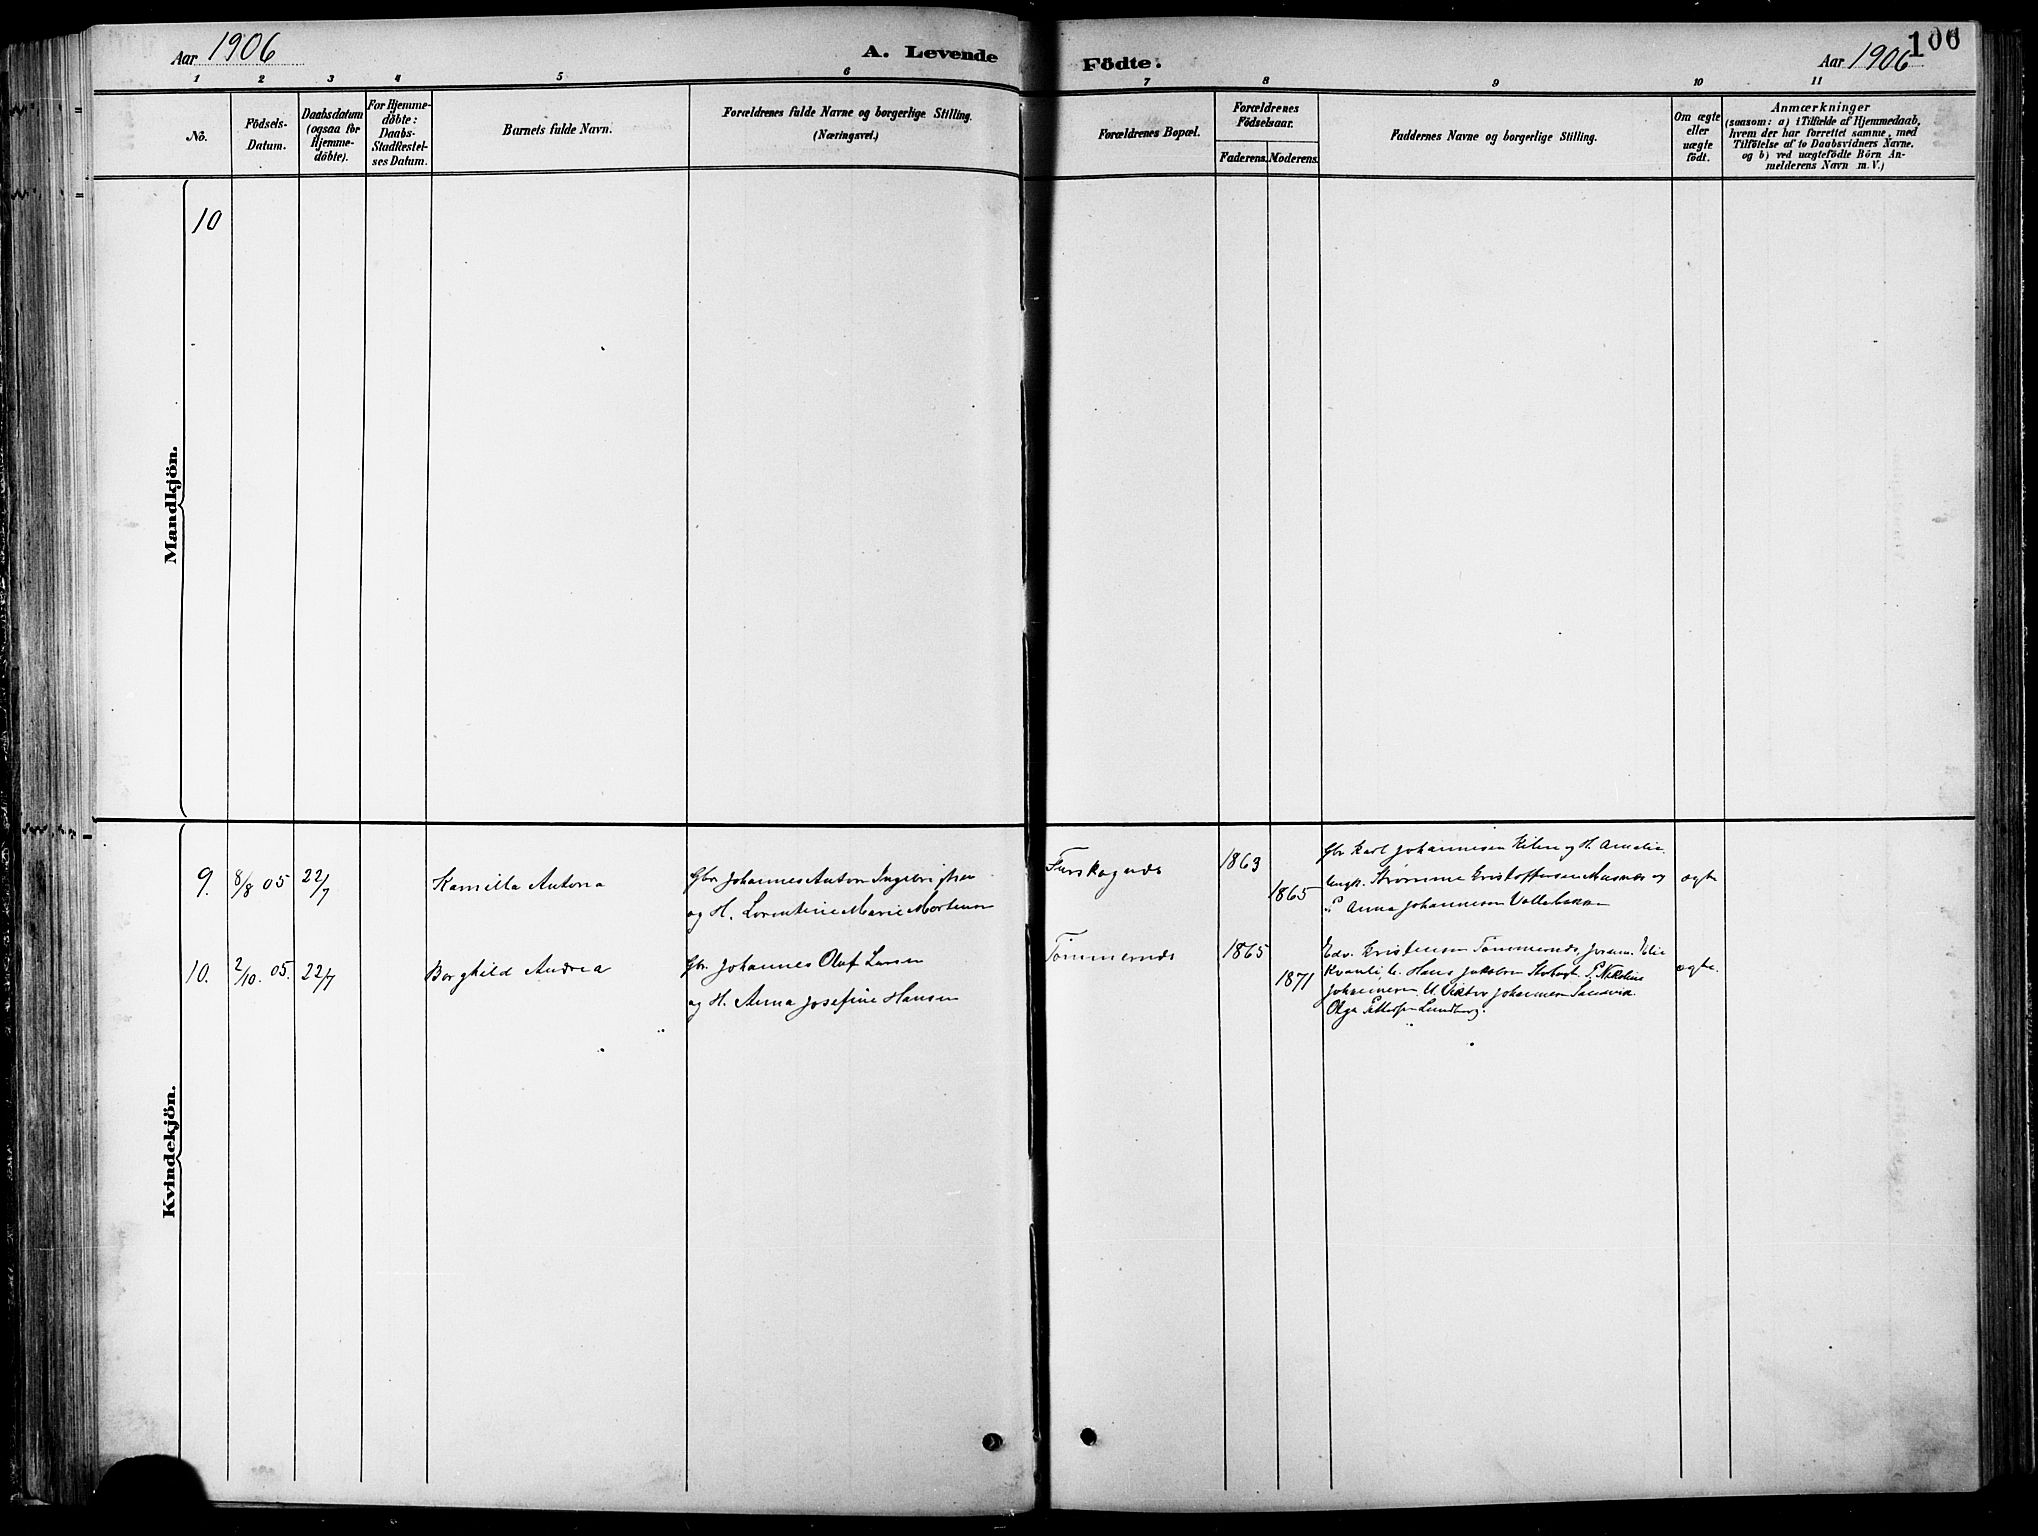 Aar 1906
A. Levende
Födte.
Aar 1906
106
1 2 3 4 5 6 7 8 9 10 11
No.
Födsels-
Datum.
Daabsdatum
(ogsaa for
Hjemme-
döbte).
For Hjemme-
döbte:
Daabs-
Stadfæstel-
ses Datum.
Barnets fulde Navn.
Forældrenes fulde Navne og borgerlige Stilling.
(Næringsvei.)
Forældrenes Bopæl.
Forældrenes
Födselsaar.
Faderens. Moderens.
Faddernes Navne og borgerlige Stilling.
Om ægte
eller
uægte
födt.
Anmærkninger
(saasom: a) i Tilfælde af Hjemmedaab,
hvem der har forrettet samme, med
Tilföielse af to Daabsvidners Navne.
og b) ved uægtefödte Börn An-
melderens Navn m. V.)
Mandkjön.
10
Kvindekjön.
9. 8/8 05 22/7
Kamilla Antona
Gbr. Johannes Anton Ingebrigtsen
og H. Lorentine Marie Mortensen
Furskognes
1863
1865
Gbr Karl Johannesen Kilen og H. Amalie.
Ungk. Strømme Kristoffersen Musnes og
P. Anna Johannesen Vollebakken
ægte
10. 2/10 05. 22/7
Borghild Andrea
Gbr. Johannes Olaf Larsen
og H. Anna Josefine Hansen
Tømmernes
1865
1871
Edv. Kristensen Tømmernes, Jordm. Elie
Kvanli, U. Hans Jakobsen P. Nikoline
Johannesen U. Viktor Johannesen Sandvik.
Olga Pettersen Lundberg.
ægte.